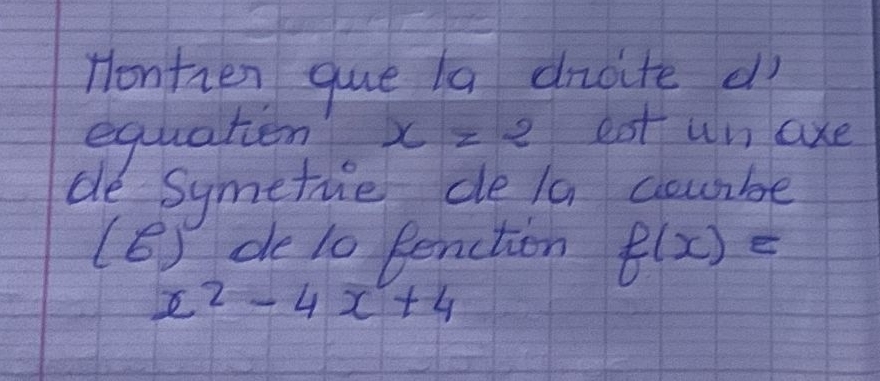 Montrer que la droite d'
equation x = 2 est un axe
de Symetrie de la courbe
(C) de la fonction f(x) =
x² - 4x + 4